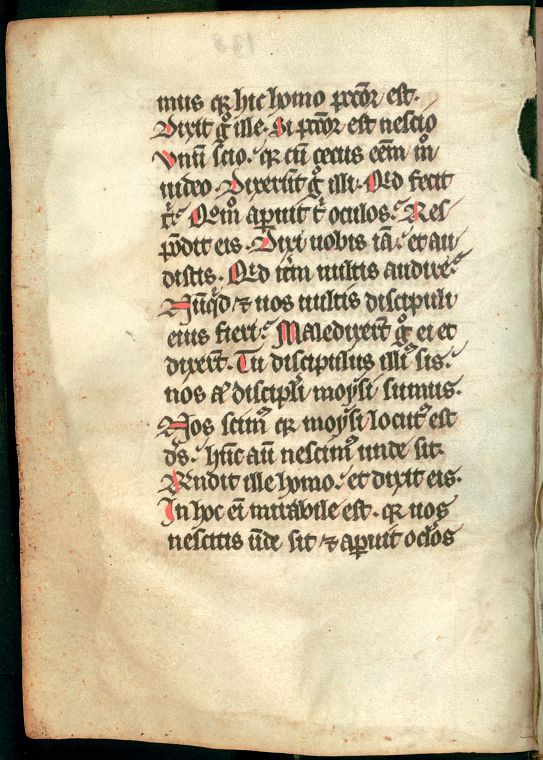 138
mus qꝛ hic homo pctõr est.
Dixit gͦ ille. Si pctõr est nescio
Vnũ scio. qꝛ cũ cecus eẽm m̊
uideo. Dixerũt gͦ illi. Qͥd fecit
t̾. Qͦm̊ aperuit t̾ oculos. Res
põdit eis. Dixi uobis iã. et au
distis. Qͥd it̾m uultis audire.
Nũqͥd ⁊ uos uultis discipuli
eius fieri. Maledixerũt gͦ ei et
dixerũt. Tu discipulus illiꝰ sis.
nos aũ discipłi moysi sumus.
Nos scimꝰ qꝛ moysi locutꝰ est
ds̃. hũc aũt nescimꝰ unde sit.
Rñdit ille homo. et dixit eis.
In hoc eñ mirabile est. qꝛ uos
nescitis ũde sit ⁊ aperuit oclõs